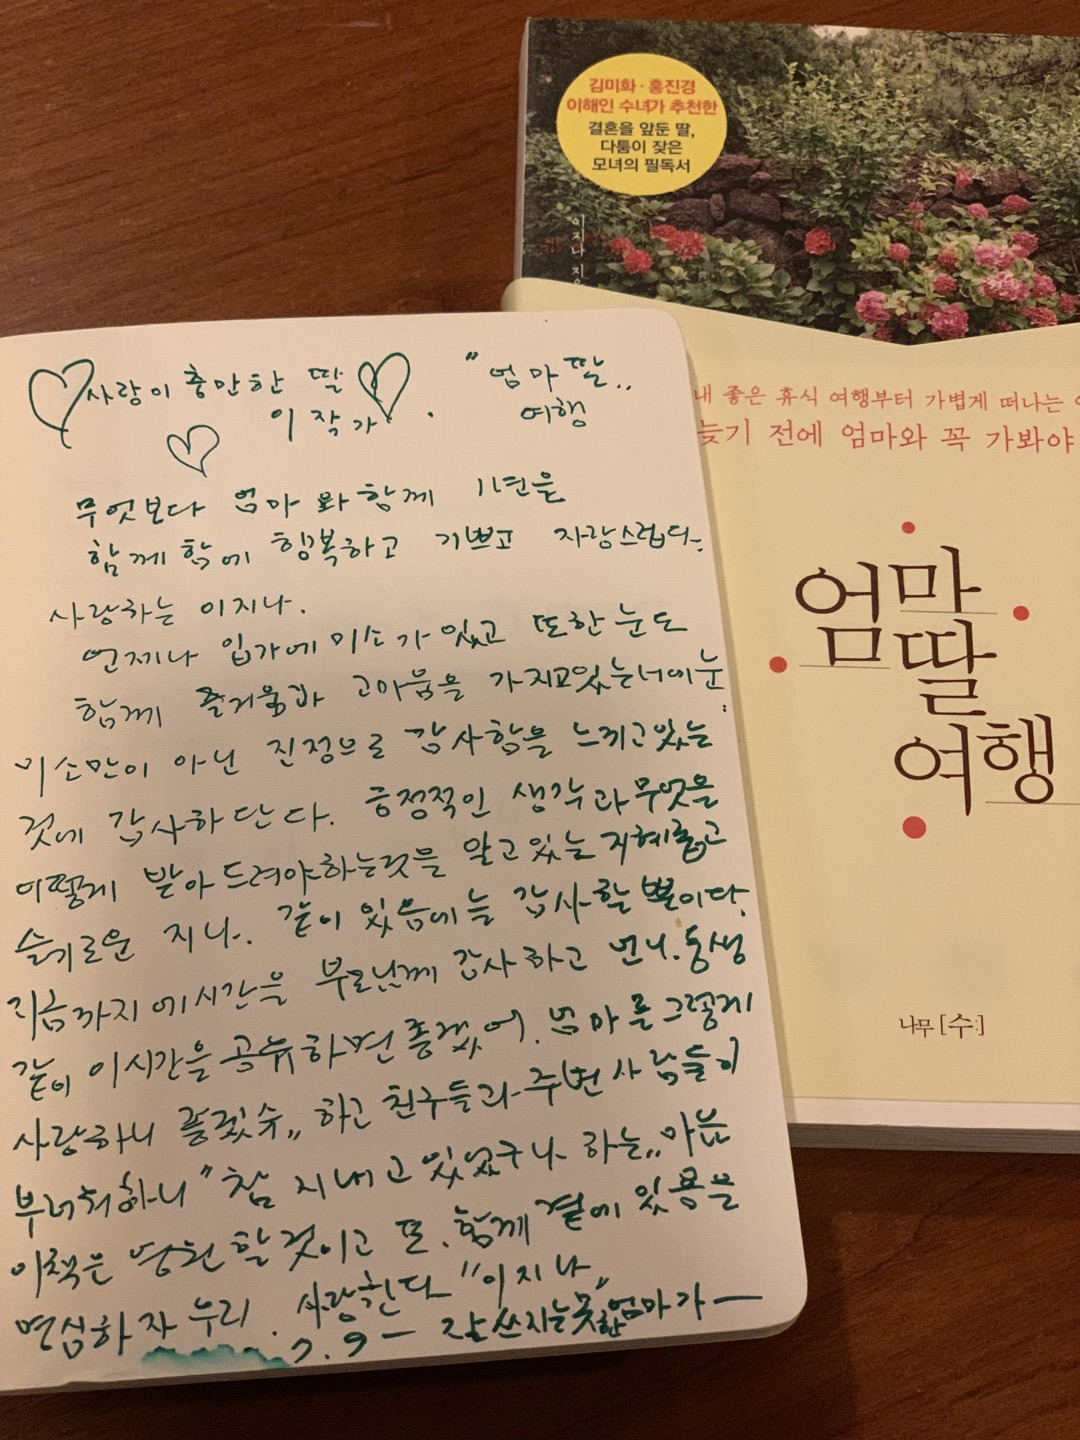 김미화 · 홍진경
이해인 수녀가 추천한
결혼을 앞둔 딸,
다툼이 잦은
모녀의 필독서
이지나 지음
내 좋은 휴식 여행부터 가볍게 떠나는
늦기 전에 엄마와 꼭 가봐야
엄마
딸
여행
나무[수:]
사랑이 충만한 딸 "엄마 딸..
이 작가. 여행
무엇보다 엄마와 함께 11년을
함께함에 행복하고 기쁘고 자랑스럽다.
사랑하는 이지나.
언제나 입가에 미소가 있고 또한 눈도
함께 즐거움과 고마움을 가지고있는 너에 눈
미소만이 아닌 진정으로 감사함을 느끼고있는
것에 감사하단다. 긍정적인 생각과 무엇을
어떻게 받아드려야하는것을 알고있는 지혜롭고
슬기로운 지나. 같이 있음에 늘 감사할 뿐이다.
지금까지에 시간을 부모님께 감사하고 언니.동생
같이 이시간을 공유하면 좋겠어. 엄마를 그렇게
사랑하니 좋겠수,, 하고 친구들과 주변 사람들이
부러워하니 "참 지내고 있었구나 하는,, 마음
이책은 영원할것이고 또. 함께 곁에 있음을
명심하자 누리. 사랑한다 "이지나,,
7. 9 ー 잘 쓰지는못한 엄마가 ー